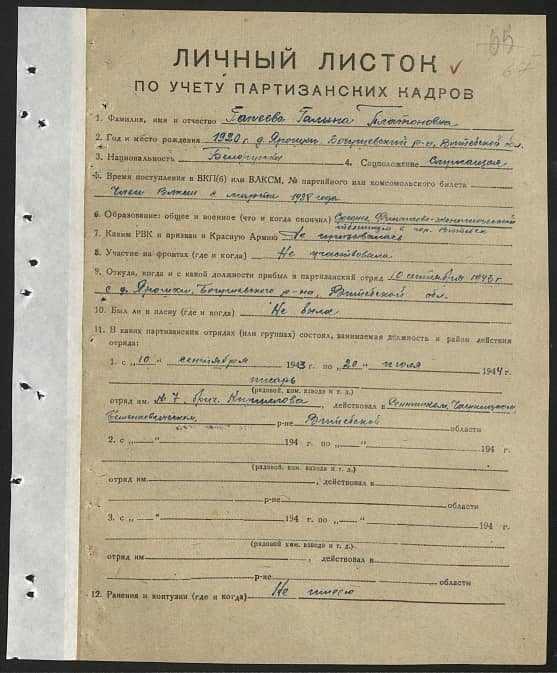 65
67
ЛИЧНЫЙ ЛИСТОК
ПО УЧЕТУ ПАРТИЗАНСКИХ КАДРОВ
1. Фамилия, имя и отчество Галина Платоновна
2. Год и место рождения 1920 г. д. Ярошки Богушевский р-н, Витебской обл.
3. Национальность Белоруска 4. Соцположение Служащая
5. Время поступления в ВКП(б) или ВЛКСМ, № партийного или комсомольского билета
Член ВЛКСМ с марта 1938 года
6. Образование: общее и военное (что и когда окончил) Среднее, Финансово-экономический
техникум в гор. Витебск
7. Каким РВК и призван в Красную Армию Не призывалась
8. Участие на фронтах (где и когда) Не участвовала
9. Откуда, когда и с какой должности прибыл в партизанский отряд 10 сентября 1943 г
с д. Ярошки, Богушевского р-на, Витебской обл.
10. Был ли в плену (где и когда) Не была
11. В каких партизанских отрядах (или группах) состоял, занимаемая должность и район действия
отряда:
1. с „10" сентября 1943 г. по „20" июля 1944 г.
писарь
(рядовой, ком. взвода и т. д.)
отряд им. № 7, бриг. Кириллова, действовал в Сенненском, Чашникском,
р-не Витебской области
2. с „ " 194 г. по „ " 194 г.
(рядовой, ком. взвода и т. д.)
отряд им. , действовал в
р-не области
3. с „ " 194 г. по „ " 194 г.
(рядовой, ком. взвода и т. д.)
отряд им. , действовал в
р-не области
12. Ранения и контузии (где и когда) Не имею